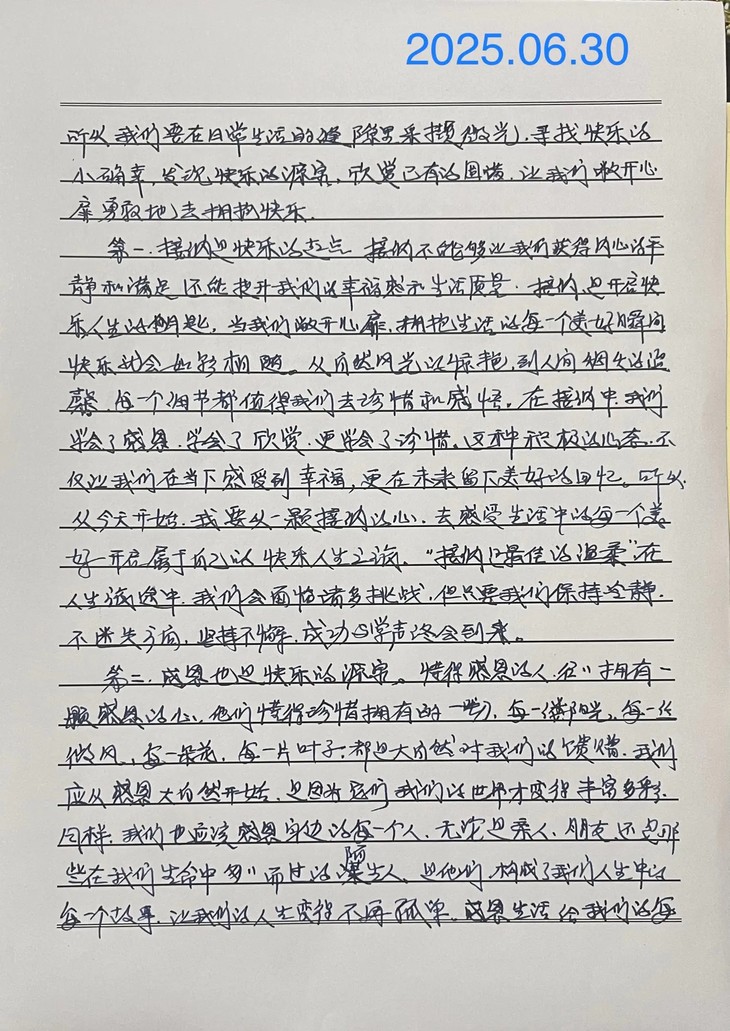 2025.06.30
所以我们要在日常生活的缝隙里采撷微光，寻找快乐的
小确幸，发现快乐的源泉，欣赏已有的困惑，让我们敞开心
扉勇敢地去拥抱快乐．
第一．接纳是快乐的起点．接纳不能够让我们获得内心的平
静和满足，还能提升我们的幸福感和生活质量．接纳，是开启快
乐人生的钥匙，当我们敞开心扉，拥抱生活的每一个美好瞬间
快乐就会如影相随。从自然风光的惊艳，到人间烟火的温
馨，每一个细节都值得我们去珍惜和感悟。在接纳中，我们
学会了感恩，学会了欣赏，更学会了珍惜。这种积极的心态，不
仅让我们在当下感受到幸福，更在未来留下美好的回忆。所以，
从今天开始，我要以一颗接纳的心，去感受生活中的每一个美
好，开启属于自己的快乐人生之旅。“接纳是最佳的温柔”在
人生旅途中，我们会面临诸多挑战，但只要我们保持冷静，
不迷失方向，坚持不懈，成功的掌声终会到来。
第二．感恩也是快乐的源泉。懂得感恩的人，往〃拥有一
颗感恩的心，他们懂得珍惜拥有的一切，每一缕阳光，每一丝
微风，每一朵花，每一片叶子，都是大自然对我们的馈赠，我们
应从感恩大自然开始，是因为它们我们的世界才变得丰富多彩．
同样，我们也应该感恩身边的每一个人，无论是亲人、朋友还是那
些在我们生命中匆〃而过的陌生人，是他们，构成了我们人生中的
每一个故事，让我们的人生变得不再孤单，感恩生活给我们的每